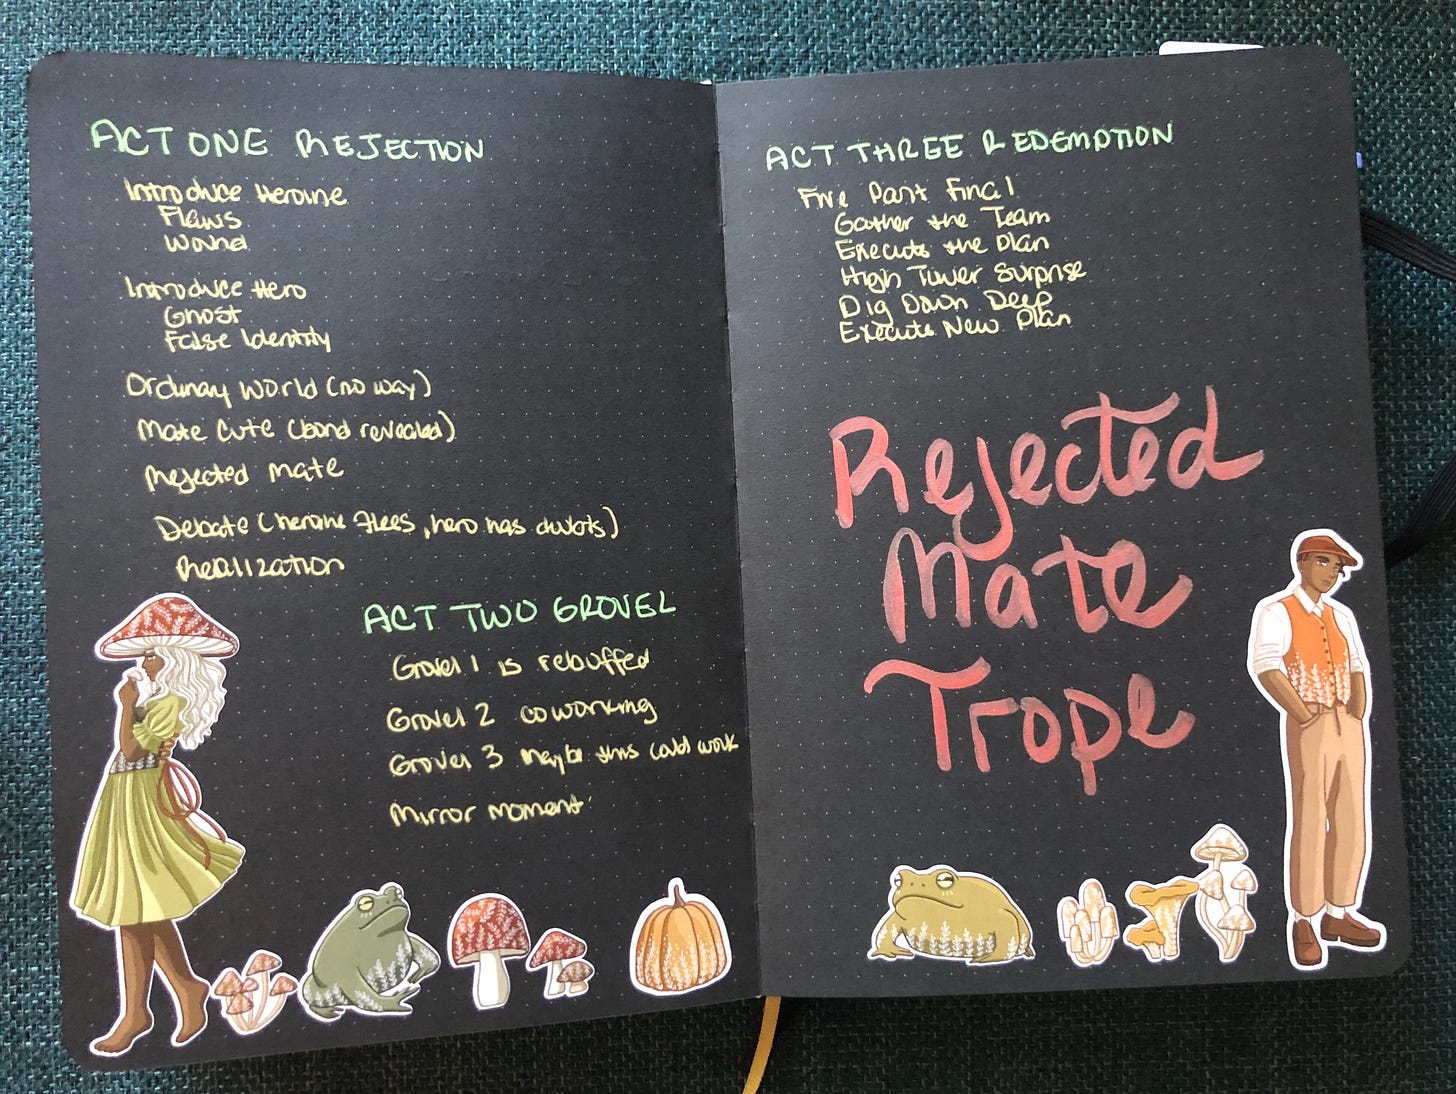 ACT ONE REJECTION
Introduce Heroine
Flaws
Wound
Introduce Hero
Ghost
False Identity
Ordinary World (no way)
Mate Cute (bond revealed)
Rejected Mate
Debate (heroine flees, hero has doubts)
Realization
ACT TWO GROVEL
Grovel 1 is rebuffed
Grovel 2 coworking
Grovel 3 Maybe this could work
Mirror Moment
ACT THREE REDEMPTION
Five Part Final
Gather the Team
Execute the Plan
High Tower Surprise
Dig Down Deep
Execute New Plan
Rejected
Mate
Trope